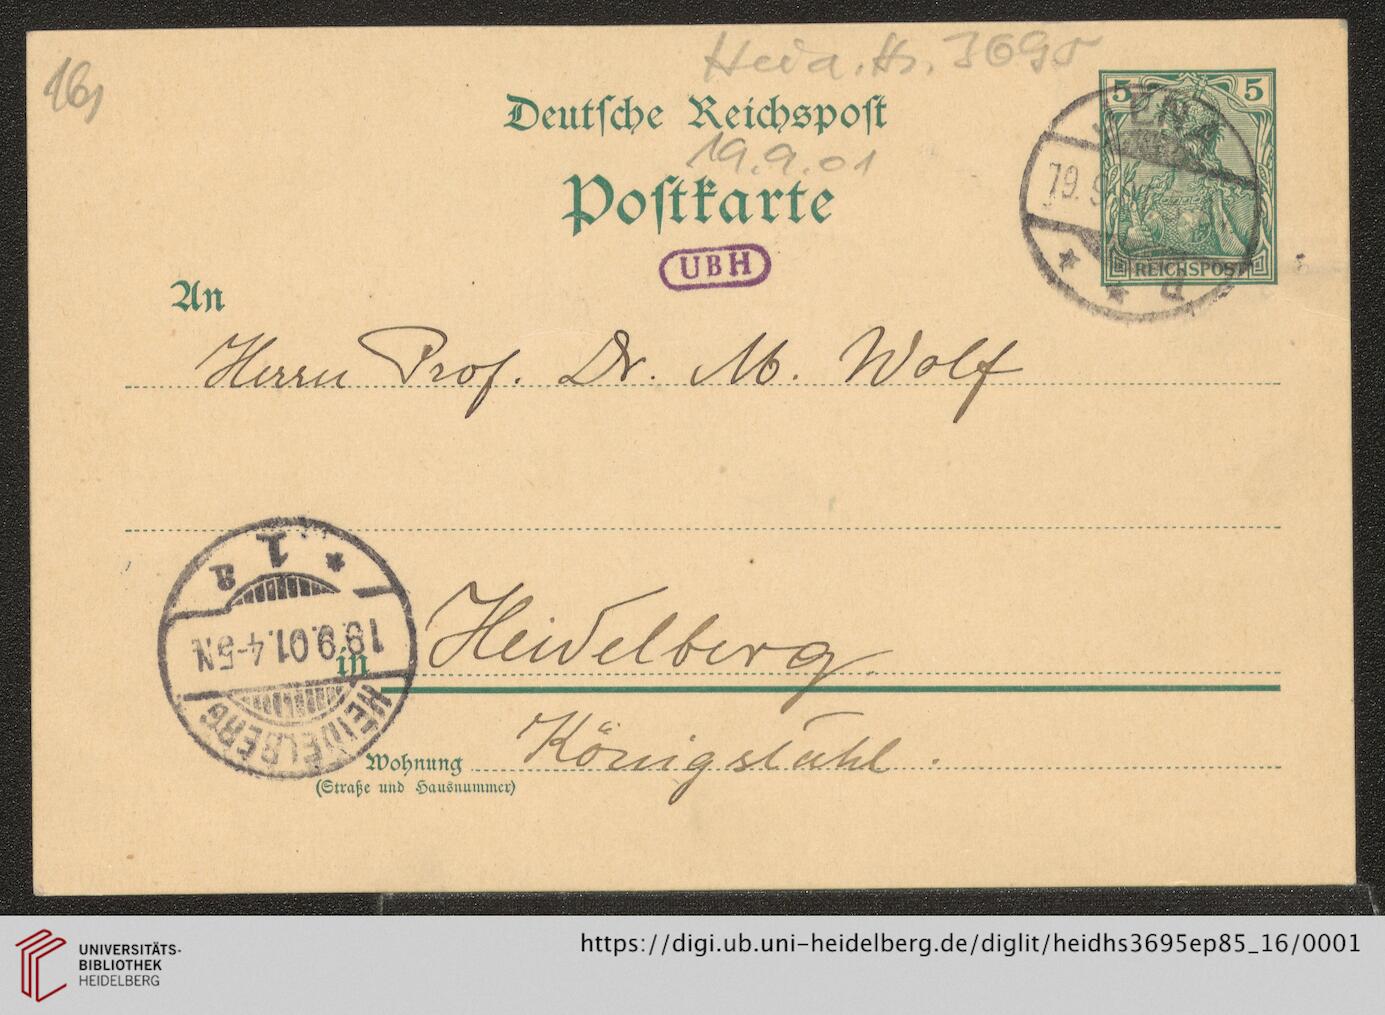 16,
Heid. Hs. 3695
Deutsche Reichspost
19.9.01
Postkarte
UBH
5 5
REICHSPOST
JENA
19.9
a
An
Herrn Prof. Dr. M. Wolf
HEIDELBERG
19.9.01.4-5N
1
a
in Heidelberg.
Wohnung Königstuhl.
(Straße und Hausnummer)
UNIVERSITÄTS-
BIBLIOTHEK
HEIDELBERG
https://digi.ub.uni-heidelberg.de/diglit/heidhs3695ep85_16/0001